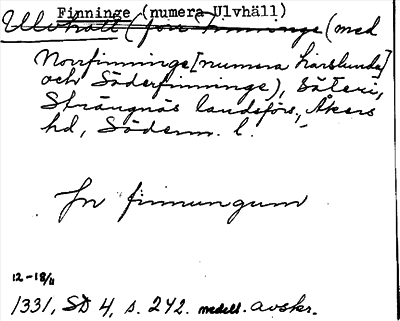 Finninge (numera Ulvhäll)
Ulvhäll (förr Finninge (med
Norrfinninge [numera Lärslunda]
och Söderfinninge), säteri,
Strängnäs landsförs., Åkers
hd, Söderm. l.
In finnungum
12-18/11
1331, SD 4, s. 242. medelt. avskr.